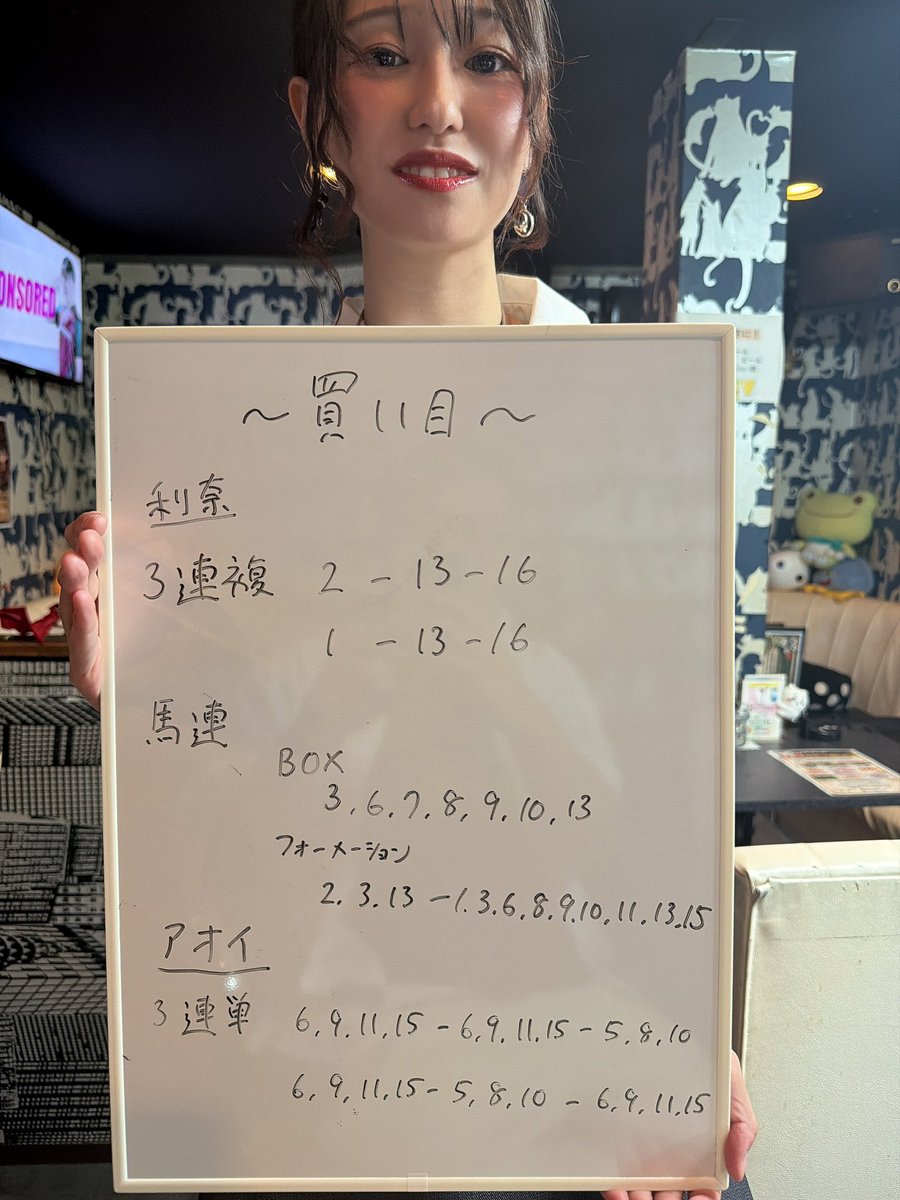 ONSORED
～買い目～
利奈
3連複 2 - 13 - 16
1 - 13 - 16
馬連
BOX
3, 6, 7, 8, 9, 10, 13
フォーメーション
2. 3. 13 - 1. 3. 6. 8. 9. 10. 11. 13. 15
アオイ
3連単 6, 9, 11, 15 - 6, 9, 11, 15 - 5, 8, 10
6, 9, 11, 15 - 5, 8, 10 - 6, 9, 11, 15